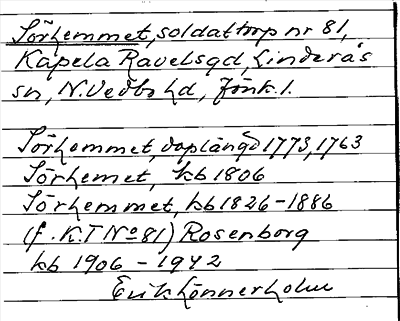 Sörhemmet, soldattorp nr 81,
Kapela Ravelsgd, Linderås
sn, N. Vedbo hd, Jönk. l.
Sörhemmet, doplängd 1773, 1763
Sörhemet, kb 1806
Sörhemmet, kb 1826-1886
(f. K.T No 81) Rosenborg
kb 1906 - 1942
Erik Lönnerholm